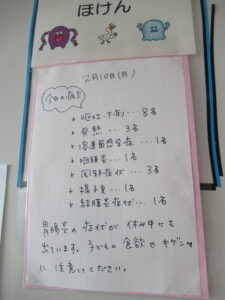 ほけん
2月10日(月)
今日の病欠
嘔吐・下痢…8名
発熱…3名
溶連菌感染症…1名
咽頭炎…1名
風邪症状…3名
様子見…1名
結膜炎症状…1名
胃腸炎の症状が休み中にも
出ています。子どもの食欲やキゲンな
に注意してください。